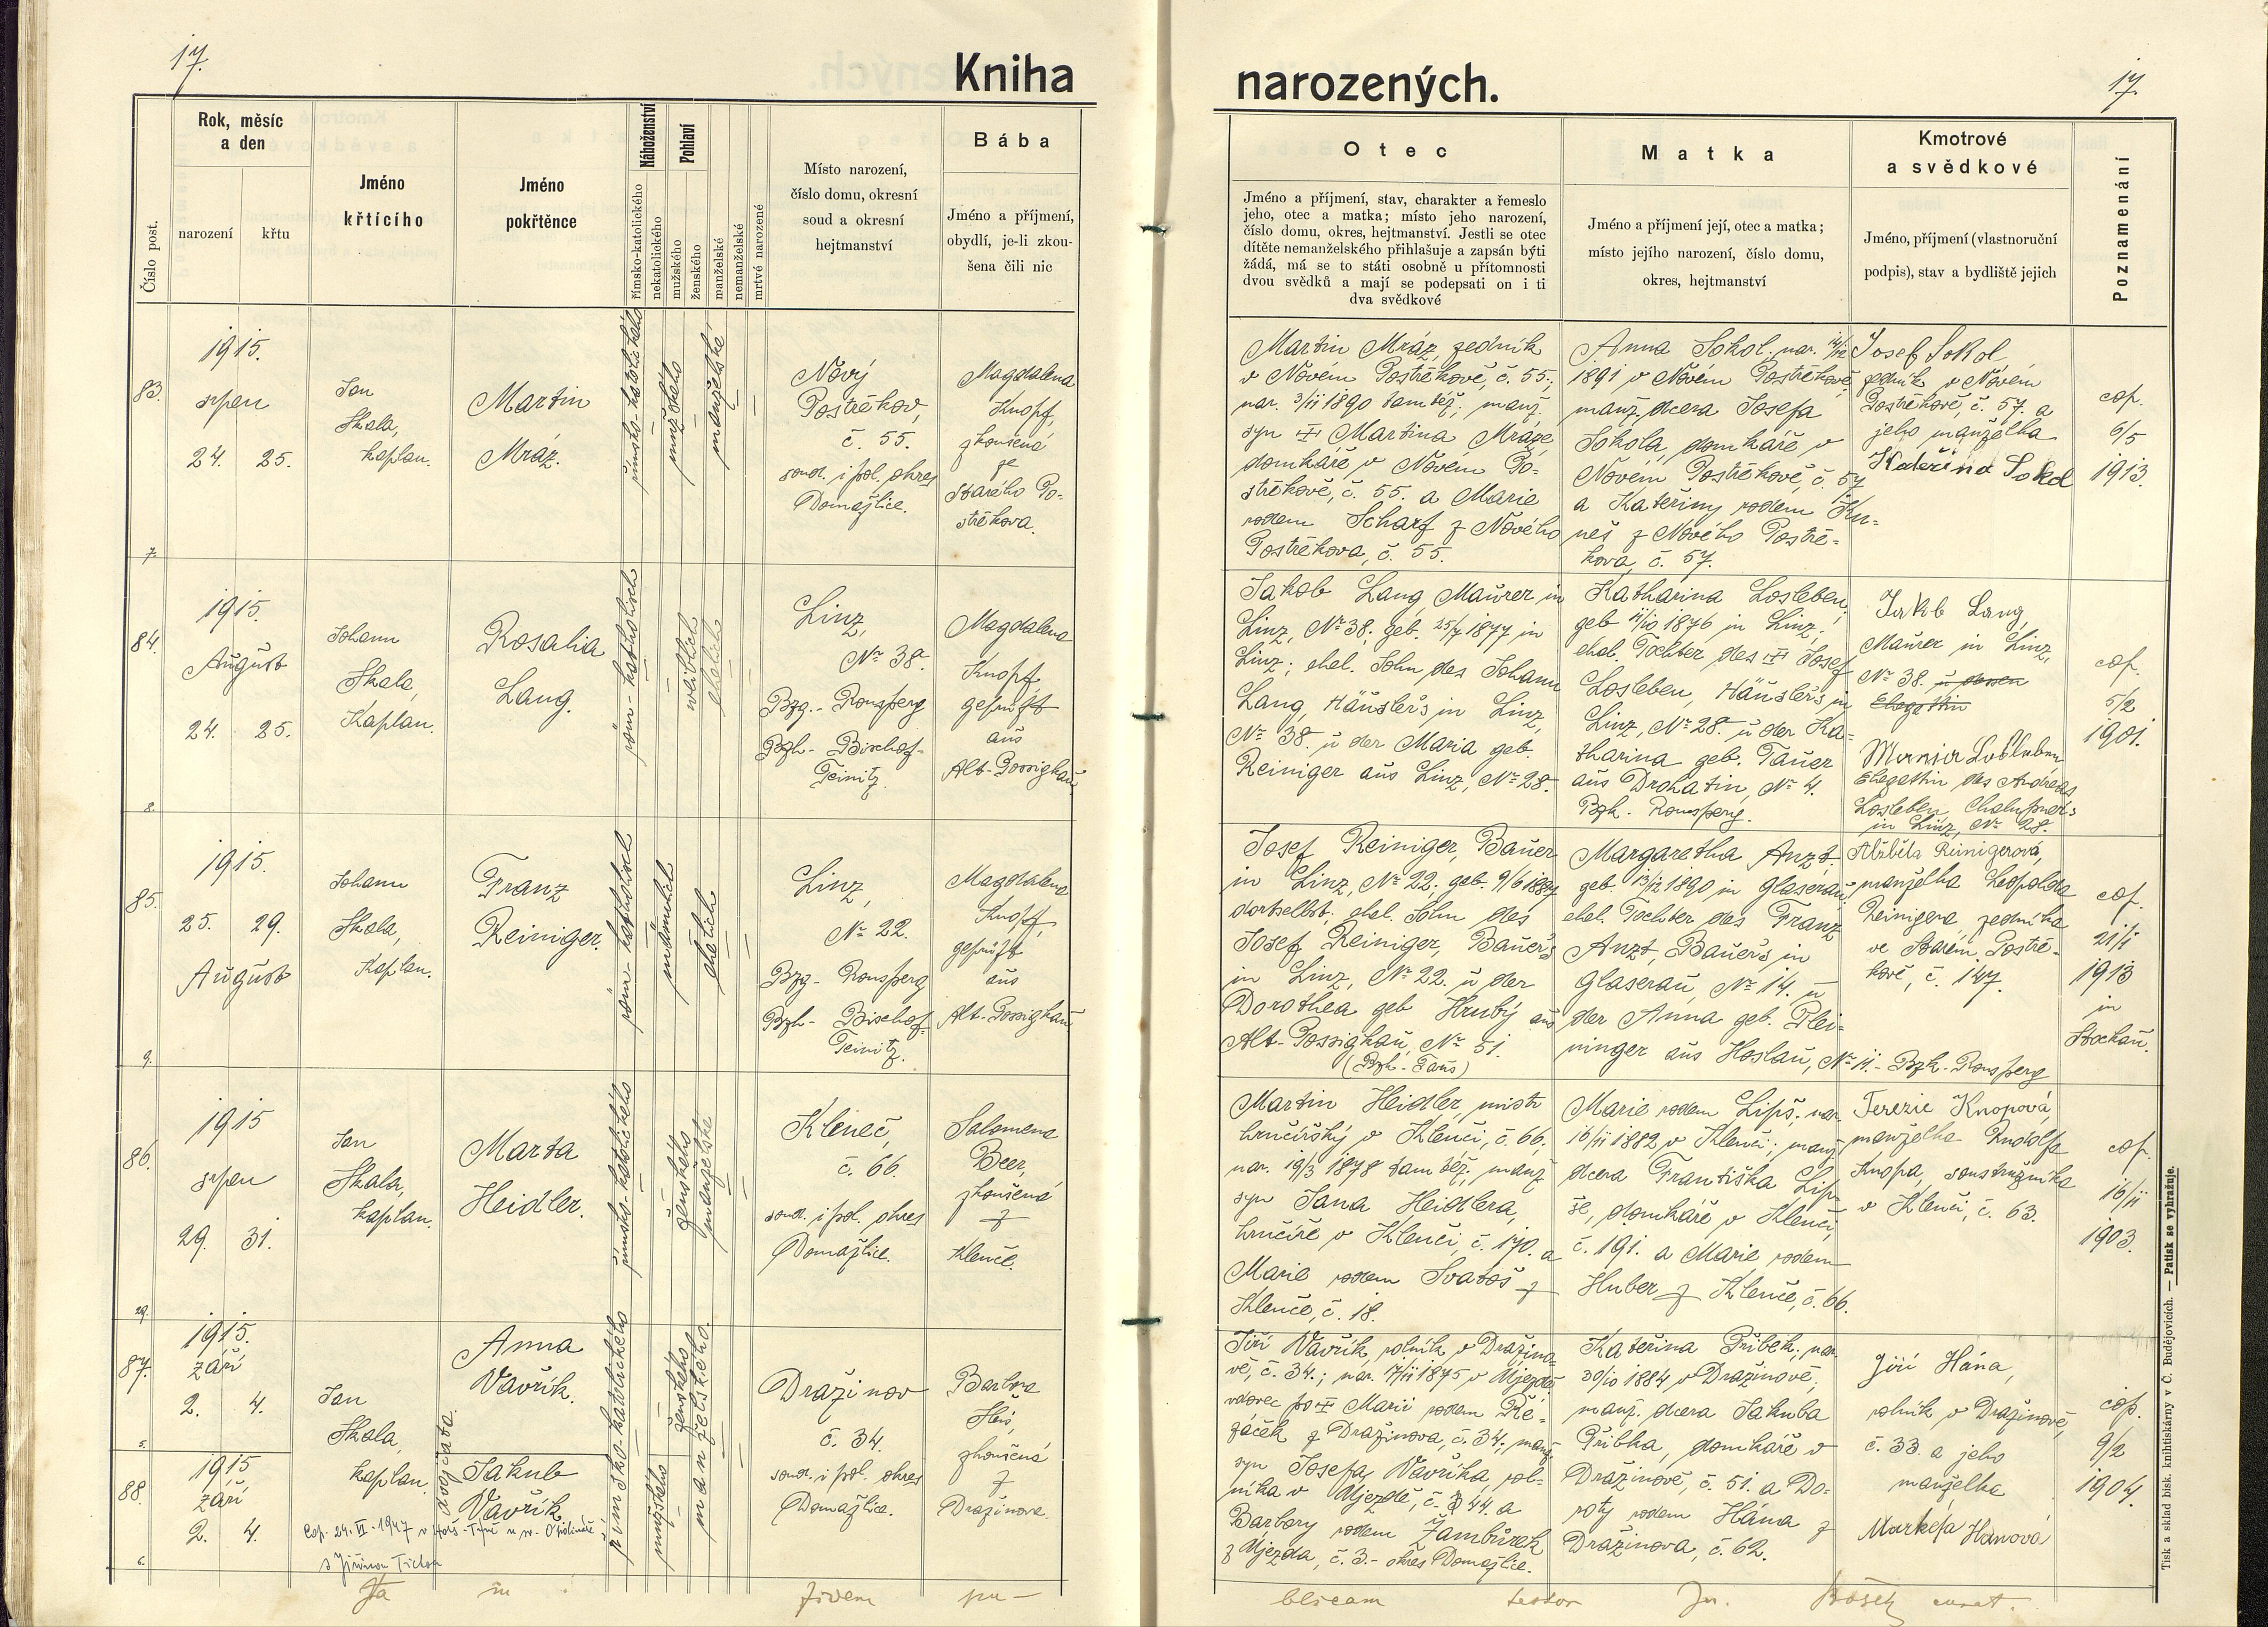 17.
Kniha
Číslo post.
Rok, měsíc
a den
narození
křtu
Jméno
křtícího
Jméno
pokřtěnce
Náboženství
římsko-katolického
nekatolického
Pohlaví
mužského
ženského
manželské
nemanželské
mrtvé narozené
Místo narození,
číslo domu, okresní
soud a okresní
hejtmanství
Bába
Jméno a příjmení,
obydlí, je-li zkou-
šena čili nic
83.
1915.
srpen
24. 25.
7.
Jan
Skala,
kaplan.
Martin
Mráz.
římsko-katolického
mužského
manželské
Nový
Postřekov,
č. 55.
soud. i pol. okres
Domažlice.
Magdalena
Knopf,
zkoušená
ze
Starého Po-
střekova.
84.
1915.
August
24. 25.
8.
Johann
Skala,
Kaplan.
Rosalia
Lang.
röm-katholisch
weiblich
ehelich
Linz,
Nr 38.
Bzg.- Ronsperg
Bzh- Bischof-
Teinitz.
Magdalena
Knopf
geprüft
aus
Alt-Possigkau
85.
1915.
25. 29.
August
9.
Johann
Skala,
Kaplan.
Franz
Reiniger.
röm-katholisch
männlich
ehelich
Linz,
Nr 22.
Bzg- Ronsperg
Bzh- Bischof-
Teinitz.
Magdalena
Knopf,
geprüft
aus
Alt-Possigkau
86.
1915
srpen
29. 31.
29.
Jan
Skala,
kaplan.
Marta
Heidler.
římsko-katolického
ženského
manželské
Kleneč,
č. 66.
soud. i pol. okres
Domažlice.
Salomena
Beer,
zkoušená
z
Klenče.
87.
1915.
září
2. 4.
5.
Jan
Skala,
kaplan.
Anna
Vavřík.
dvojčata.
88.
1915
září
2. 4.
6.
Jakub
Vavřík
Cop. 24. VI. 1947 v
s Jiřinou
římsko-katolického
ženského
mužského
manželského.
Dražinov
č. 34.
soud. i pol. okres
Domažlice.
Barbora
zkoušená
z
Dražinova.
narozených.
17.
Otec
Jméno a příjmení, stav, charakter a řemeslo
jeho, otec a matka; místo jeho narození,
číslo domu, okres, hejtmanství. Jestli se otec
dítěte nemanželského přihlašuje a zapsán býti
žádá, má se to státi osobně u přítomnosti
dvou svědků a mají se podepsati on i ti
dva svědkové
Matka
Jméno a příjmení její, otec a matka;
místo jejího narození, číslo domu,
okres, hejtmanství
Kmotrové
a svědkové
Jméno, příjmení (vlastnoruční
podpis), stav a bydliště jejich
Poznamenání
Martin Mráz, zedník
v Novém Postřekově, č. 55.;
nar. 3/11 1890 tamtéž; manž.
syn Martina Mráze,
domkáře v Novém Po-
střekově, č. 55. a Marie
rodem Scharf z Nového
Postřekova, č. 55.
Anna Sokol, nar. 14/12
1891 v Novém Postřekově,
manž. dcera Josefa
Sokola, domkáře v
Novém Postřekově, č. 57
a Kateřiny rodem Ku-
neš z Nového Postře-
kova, č. 57.
Josef Sokol
zedník v Novém
Postřekově, č. 57. a
jeho manželka
Kateřina Sokol
cop.
6/5
1913.
Jakob Lang, Maurer in
Linz, Nr 38; geb. 25/7 1877 in
Linz; ehel. Sohn des Johann
Lang, Häuslers in Linz,
Nr 38. u der Maria geb.
Reiniger aus Linz, Nr 28.
Katharina Losleben,
geb 11/10 1876 in Linz;
ehel. Tochter des Josef
Losleben, Häuslers in
Linz, Nr 28. u der Ka-
tharina geb. Tauer
aus Drohatin, Nr 4.
Bzh. Ronsperg.
Jakob Lang,
Maurer in Linz,
Nr 38. u dessen
Ehegattin
Maria Losleben
Ehegattin des Andreas
Losleben, Chalupners
in Linz, Nr 28.
cop.
5/2
1901.
Josef Reiniger, Bauer
in Linz, Nr 22; geb. 9/6 1887
dortselbst; ehel. Sohn des
Josef Reiniger, Bauers
in Linz, Nr 22. u der
Dorothea geb Hrubý aus
Alt-Possigkau, Nr 51.
(Bzh- Taus)
Margaretha Anzt,
geb. 13/12 1890 in Glaserau,
ehel. Tochter des Franz
Anzt, Bauers in
Glaserau, Nr 14. u
der Anna geb. Plei-
ninger aus Hoslau, Nr 11.- Bzh- Ronsperg
Alžběta Reinigerová,
manželka Leopolda
Reinigera, zedníka
ve Starém Postře-
kově, č. 147.
cop.
21/1
1913
in
Stockau.
Martin Heidler, mistr
hrnčířský v Klenči, č. 66;
nar. 19/3 1878 tamtéž; manž
syn Jana Heidlera,
hrnčíře v Klenči, č. 170. a
Marie rodem Svatoš z
Klenče, č. 18.
Marie rodem Lipš; nar.
16/11 1882 v Klenči; manž
dcera Františka Lip-
še, domkáře v Klenči,
č. 191. a Marie rodem
Huber z Klenče, č. 66.
Terezie Knopová,
manželka Rudolfa
Knopa, soustružníka
v Klenči, č. 63.
cop.
16/11
1903.
Jiří Vavřík, rolník v Dražino-
vě, č. 34.; nar. 17/11 1875 v Újezdě,
vdovec po Marii rodem Ře-
záček z Dražinova, č. 34.; manž
syn Josefa Vavříka, rol-
níka v Újezdě, č. 44. a
Barbory rodem Žambůrek
z Újezda, č. 3.- okres Domažlice.
Kateřina Přibek; nar.
30/10 1884 v Dražinově;
manž. dcera Jakuba
Přibka, domkáře v
Dražinově, č. 51. a Do-
roty rodem Hána z
Dražinova, č. 62.
Jiří Hána,
rolník v Dražinově,
č. 33. a jeho
manželka
Markéta Hanová
cop.
9/2
1904.
Tisk a sklad bisk. knihtiskárny v Č. Budějovicích. — Patisk se vyhražuje.